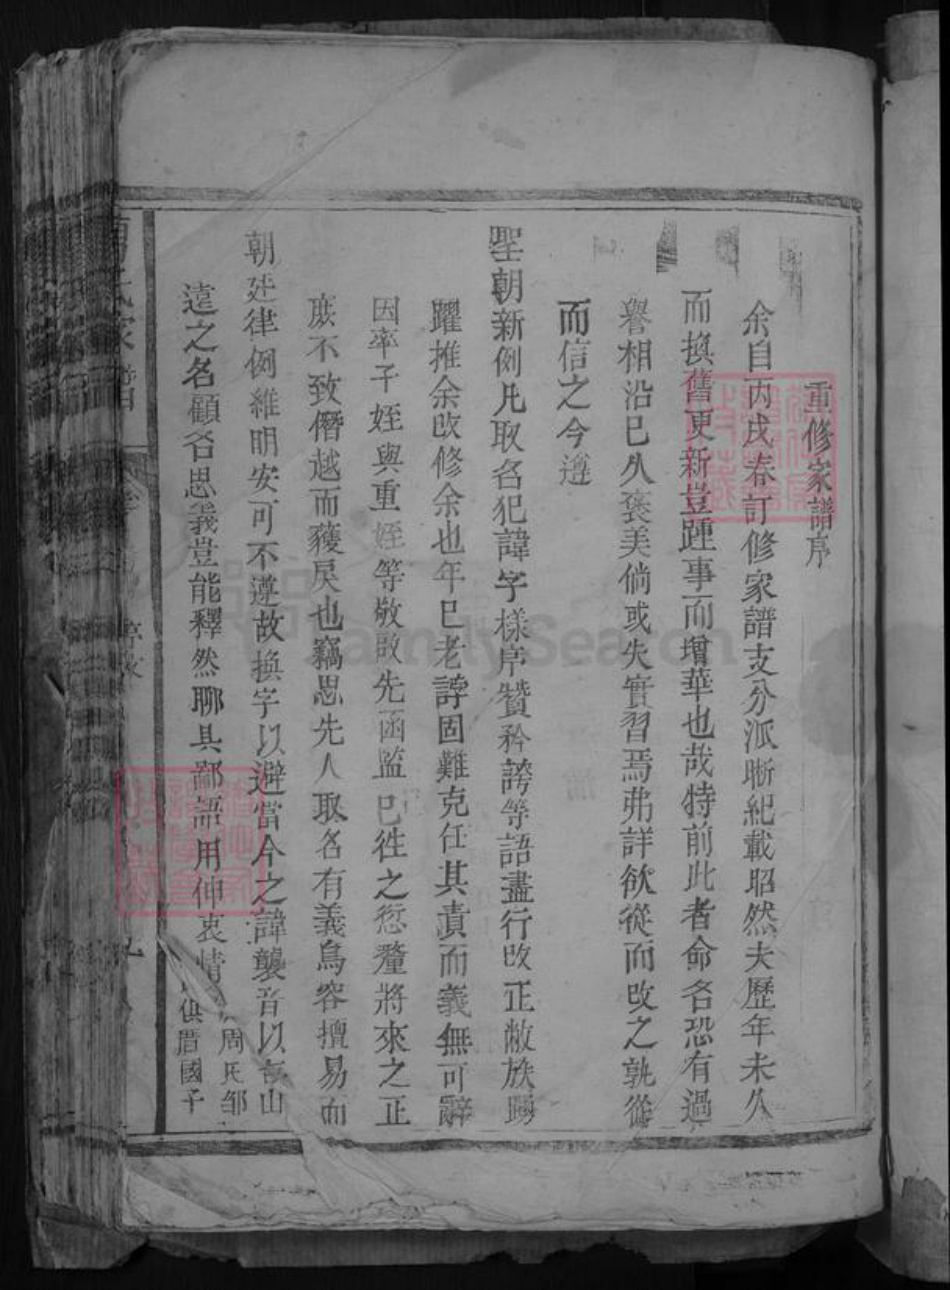 重修家譜序
余自丙戌春訂修家譜支分派晰紀載昭然夫歷年未久
而換舊更新豈踵事而增華也哉特前此者命名恐有過
譽相沿已久褒美倘或失實習焉弗詳欲從而改之孰從
而信之今遵
聖朝新例凡取名犯諱字樣序贊矜誇等語盡行改正敝族踴
躍推余改修余也年已老誖固難克任其責而義無可辭
因率子姪與重姪等敬啟先函監已往之愆釐將來之正
庶不致僭越而獲戾也竊思先人取名有義烏容擅易而
朝廷律例維明安可不遵故換字以避當今之諱襲音以 山
遠之名顧名思義豈能釋然聊具鄙語用伸衷情
周氏邹
俱厝國子
FamilySearch